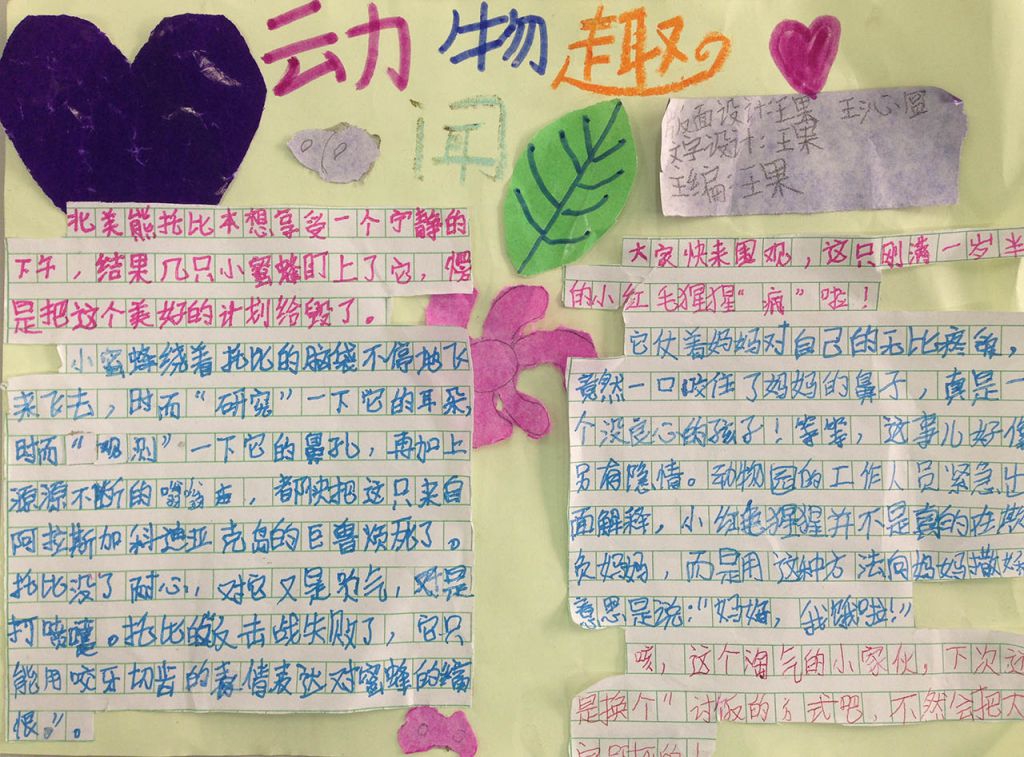 动物趣
闻
版面设计:王果 王沁
文字设计:王果
主编:王果
北美熊托比本想享受一个宁静的
下午,结果几只小蜜蜂盯上了它,愣
是把这个美好的计划给毁了。
小蜜蜂绕着托比的脑袋不停地飞
来飞去,时而“研究”一下它的耳朵,
时而“观测”一下它的鼻孔,再加上
源源不断的嗡嗡声,都快把这只来自
阿拉斯加科迪亚克岛的巨兽烦死了。
托比没了耐心,对它又是吹气,又是
打喷嚏。托比的反击战失败了,它只
能用咬牙切齿的表情表达对蜜蜂的痛
恨。”。
大家快来围观,这只刚满一岁半
的小红毛猩猩“疯”啦!
它仗着妈妈对自己的无比疼爱,
竟然一口咬住了妈妈的鼻子,真是一
个没良心的孩子!等等,这事儿好像
另有隐情。动物园的工作人员紧急出
面解释,小红毛猩猩并不是真的在欺
负妈妈,而是用这种方法向妈妈撒娇
意思是说:“妈妈,我饿啦!”
咳,这个淘气的小家伙,下次还
是换个”讨饭的方式吧,不然会把大